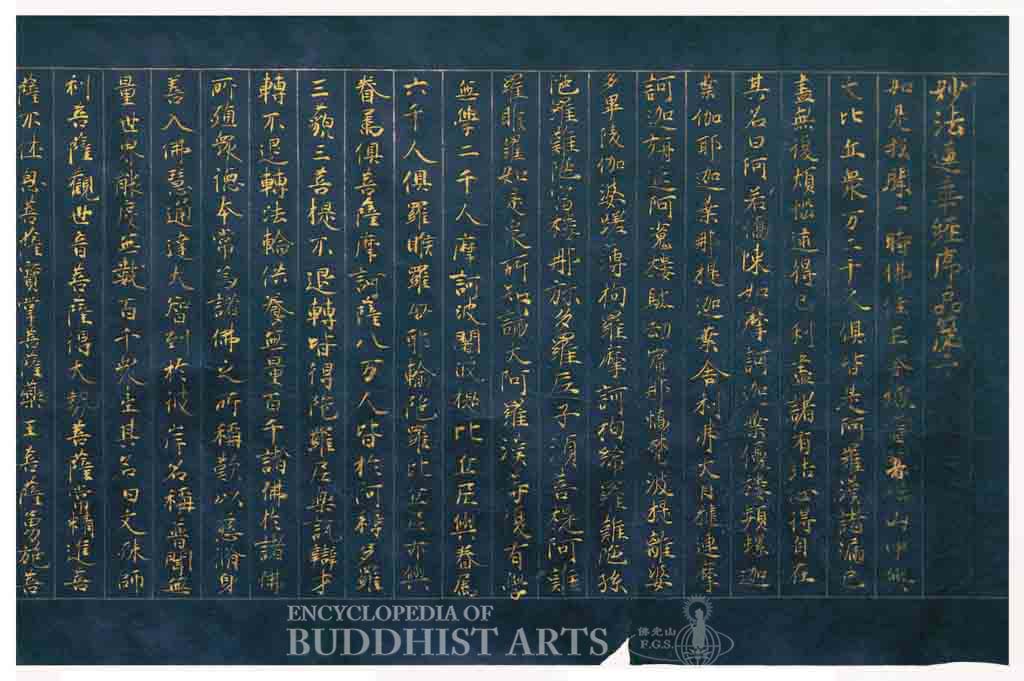 妙法蓮華經序品第一
如是我聞一時佛住王舍城耆闍崛山中與
大比丘眾万二千人俱皆是阿羅漢諸漏已
盡無復煩惱逮得己利盡諸有結心得自在
其名曰阿若憍陳如摩訶迦葉優樓頻螺迦
葉伽耶迦葉那提迦葉舍利弗大目揵連摩
訶迦旃延阿㝹樓馱劫賓那憍梵波提離婆
多畢陵伽婆蹉薄拘羅摩訶拘絺羅難陁孫
陁羅難陁富樓那弥多羅尼子須菩提阿難
羅睺羅如是眾所知識大阿羅漢等復有學
無學二千人摩訶波闍波提比丘尼與眷屬
六千人俱羅睺羅母耶輸陁羅比丘尼亦與
眷屬俱菩薩摩訶薩八万人皆於阿耨多羅
三藐三菩提不退轉皆得陀羅尼樂說辯才
轉不退轉法輪供養無量百千諸佛於諸佛
所殖眾德本常為諸佛之所稱歎以慈脩身
善入佛慧通達大智到於彼岸名稱普聞無
量世界能度無數百千眾生其名曰文殊師
利菩薩觀世音菩薩得大勢菩薩常精進菩
薩不休息菩薩寶掌菩薩藥王菩薩勇施菩
ENCYCLOPEDIA OF
BUDDHIST ARTS
佛光山
F.G.S.